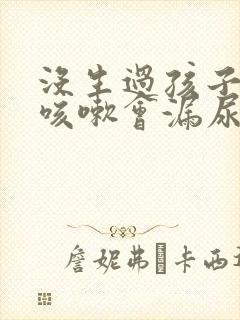 沒生過孩子
咳嗽會漏尿
詹妮弗·卡西